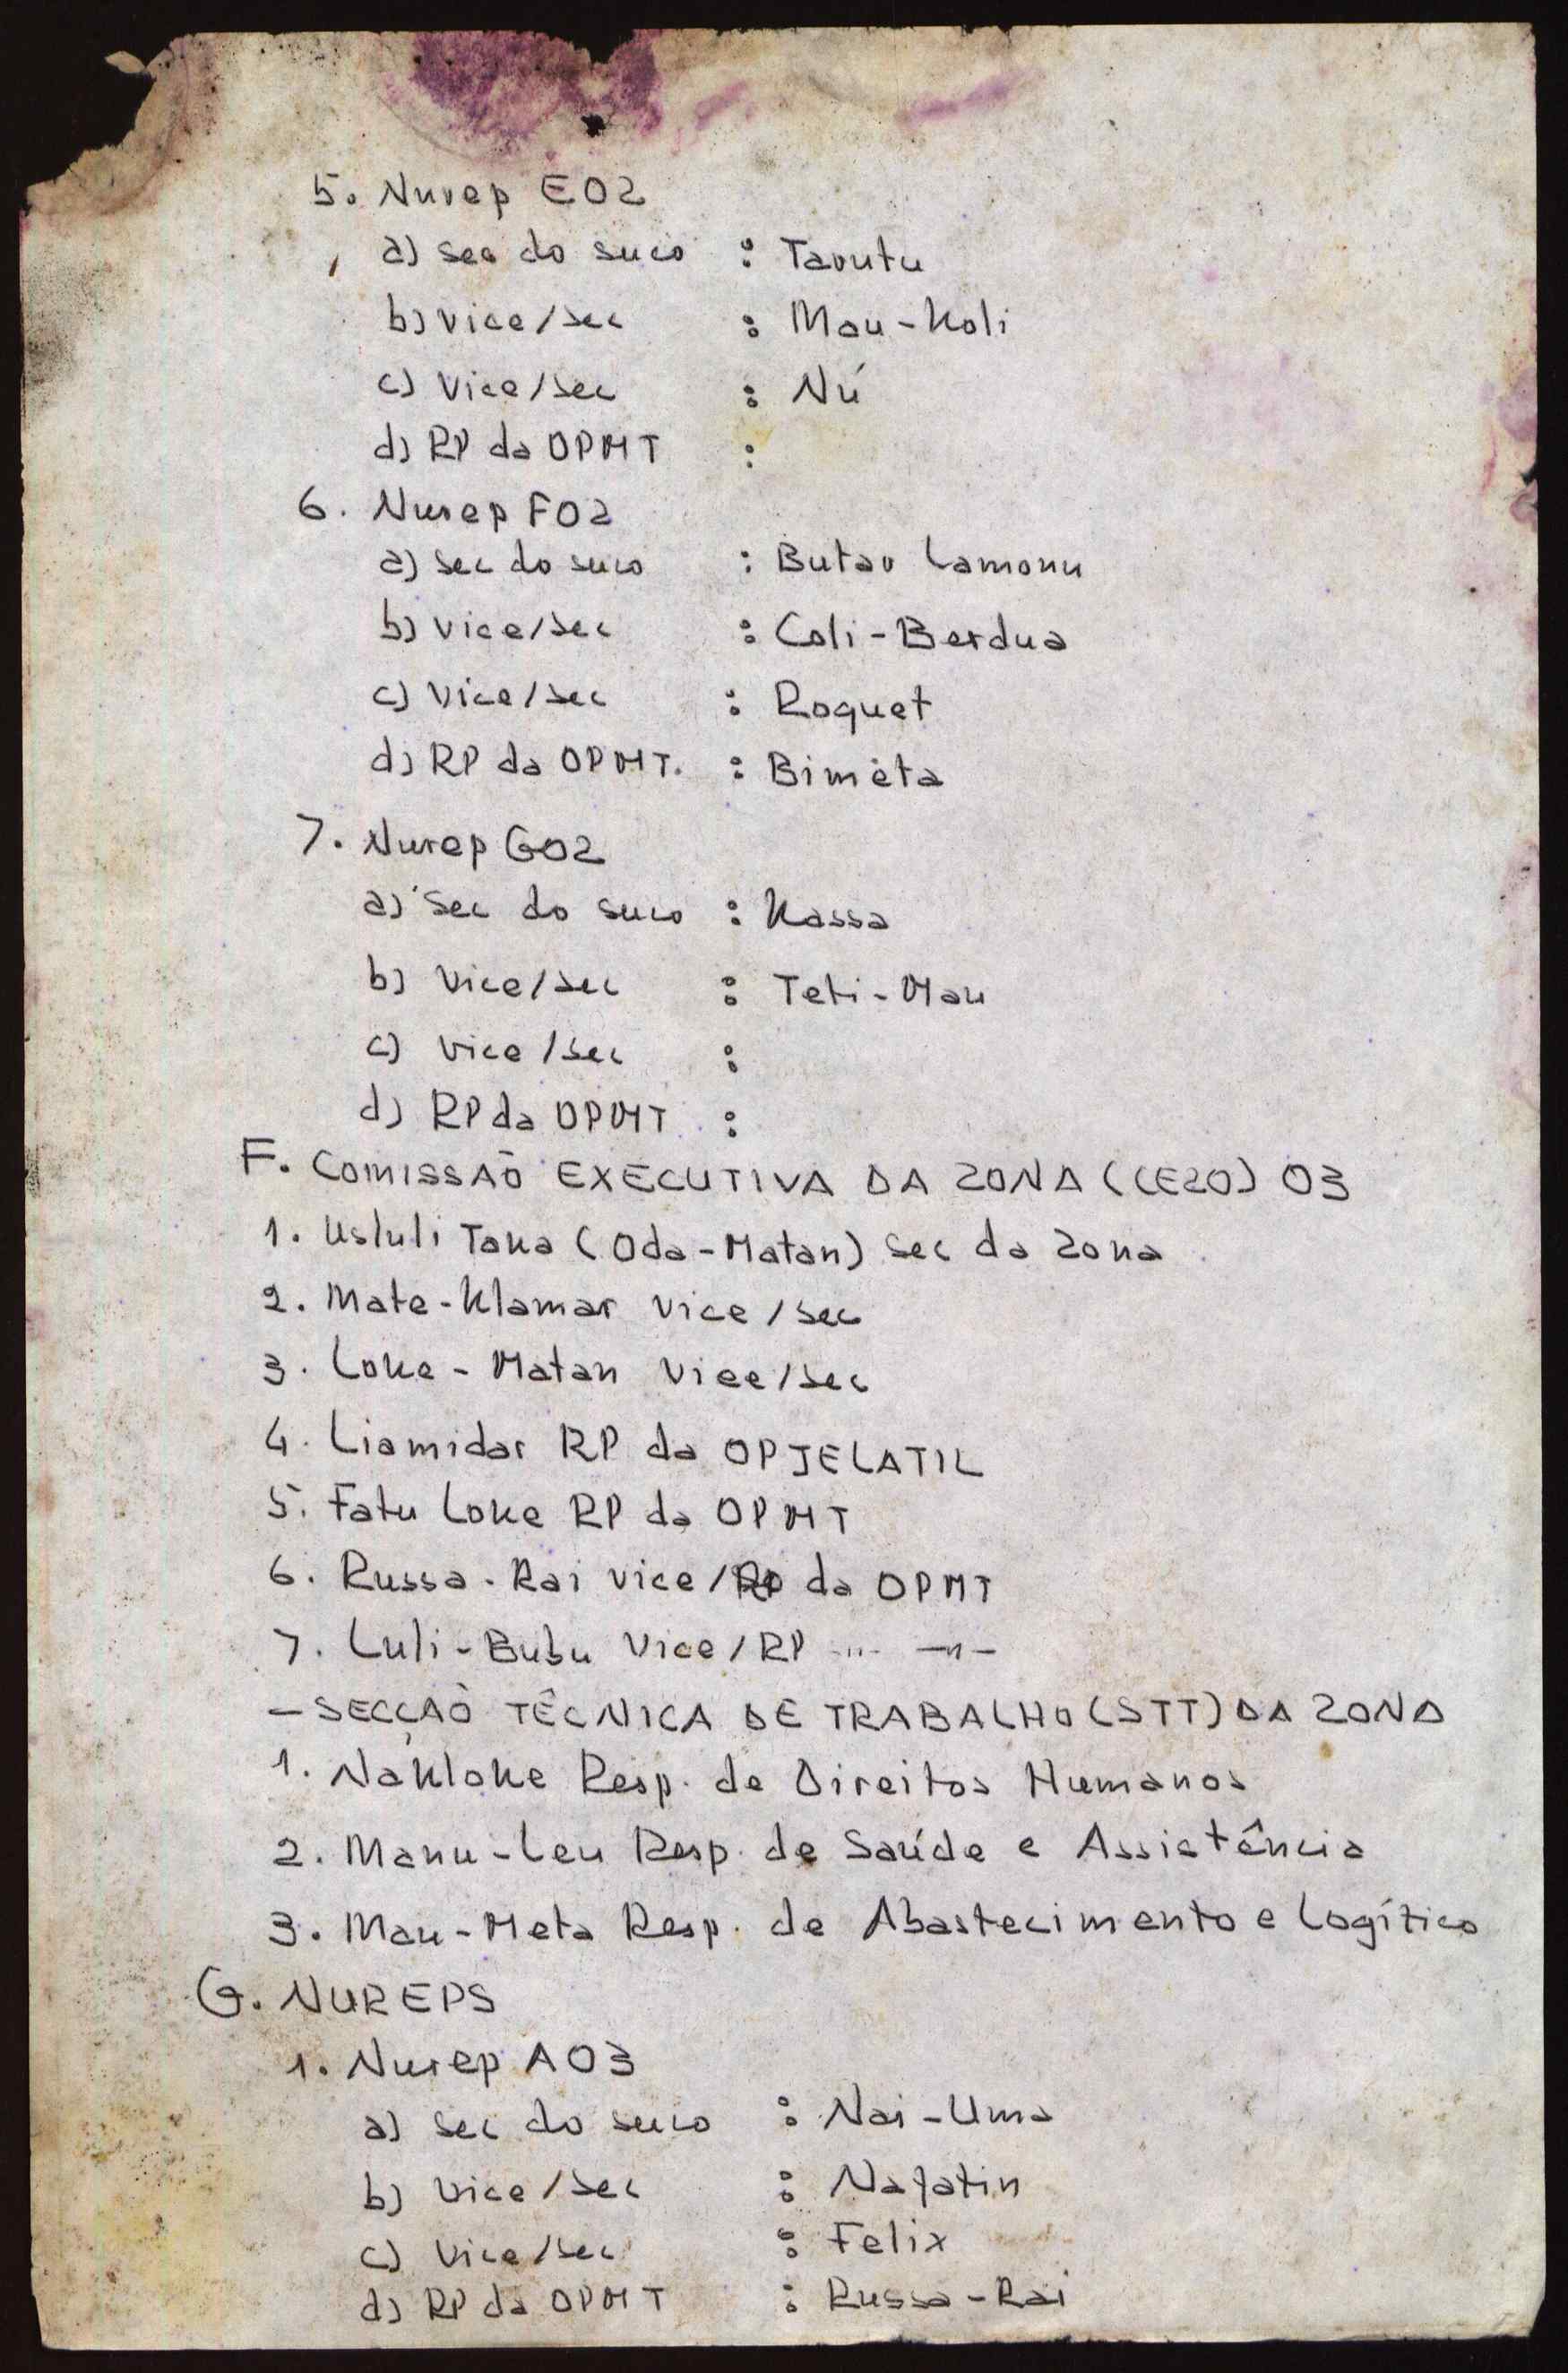 5. Nurep E02
a) sec do suco : Tavutu
b) vice/sec : Mau-Koli
c) Vice/sec : Nú
d) RP da OPMT :
6. Nurep F02
a) sec do suco : Butar Lamonu
b) vice/sec : Coli-Berdua
c) Vice/sec : Roquet
d) RP da OPMT. : Bimèta
7. Nurep G02
a) Sec do suco : Kassa
b) Vice/sec : Teti-Mau
c) vice/sec :
d) RP da OPMT :
F. COMISSÃO EXECUTIVA DA ZONA (CEZO) 03
1. Usluli Taka (Oda-Matan) sec da zona
2. Mate-Klamar Vice/sec
3. Loke-Matan Vice/sec
4. Liamidar RP da OPJELATIL
5. Fatu Loke RP da OPMT
6. Russa-Rai vice/RP da OPMT
7. Luli-Bubu Vice/RP ... —"—
- SECÇÃO TÊCNICA DE TRABALHO (STT) DA ZONA
1. Nakloke Resp. de Direitos Humanos
2. Manu-Leu Resp. de Saúde e Assistência
3. Mau-Meta Resp. de Abastecimento e Logítico
G. NUREPS
1. Nurep A03
a) sec do suco : Nai-Uma
b) vice/sec : Nafatin
c) Vice/sec : Felix
d) RP da OPMT : Russa-Rai